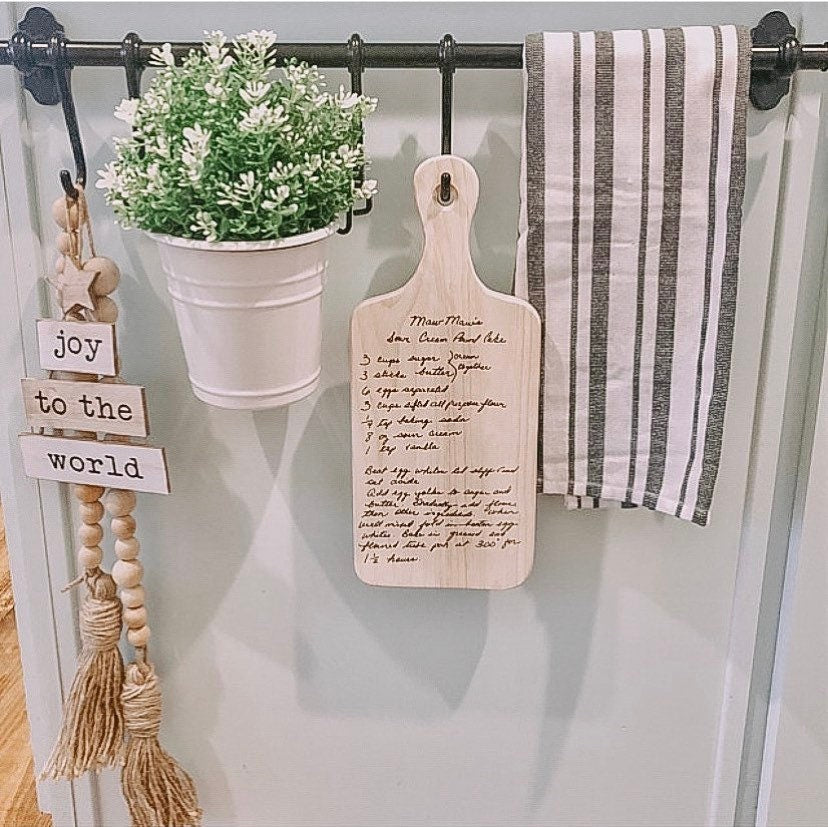 joy
to the
world
Maw Maw's
Sour Cream Pound Cake
3 cups sugar } cream
3 sticks butter } together
6 eggs separated
3 cups sifted all purpose flour
1/4 tsp baking soda
8 oz sour cream
1 tsp vanilla
Beat egg whites till stiff and
set aside
Add egg yolks to sugar and
butter. Gradually add flour
then other ingredients. When
well mixed fold in beaten egg
whites. Bake in greased and
floured tube pan at 300° for
1 1/2 hours